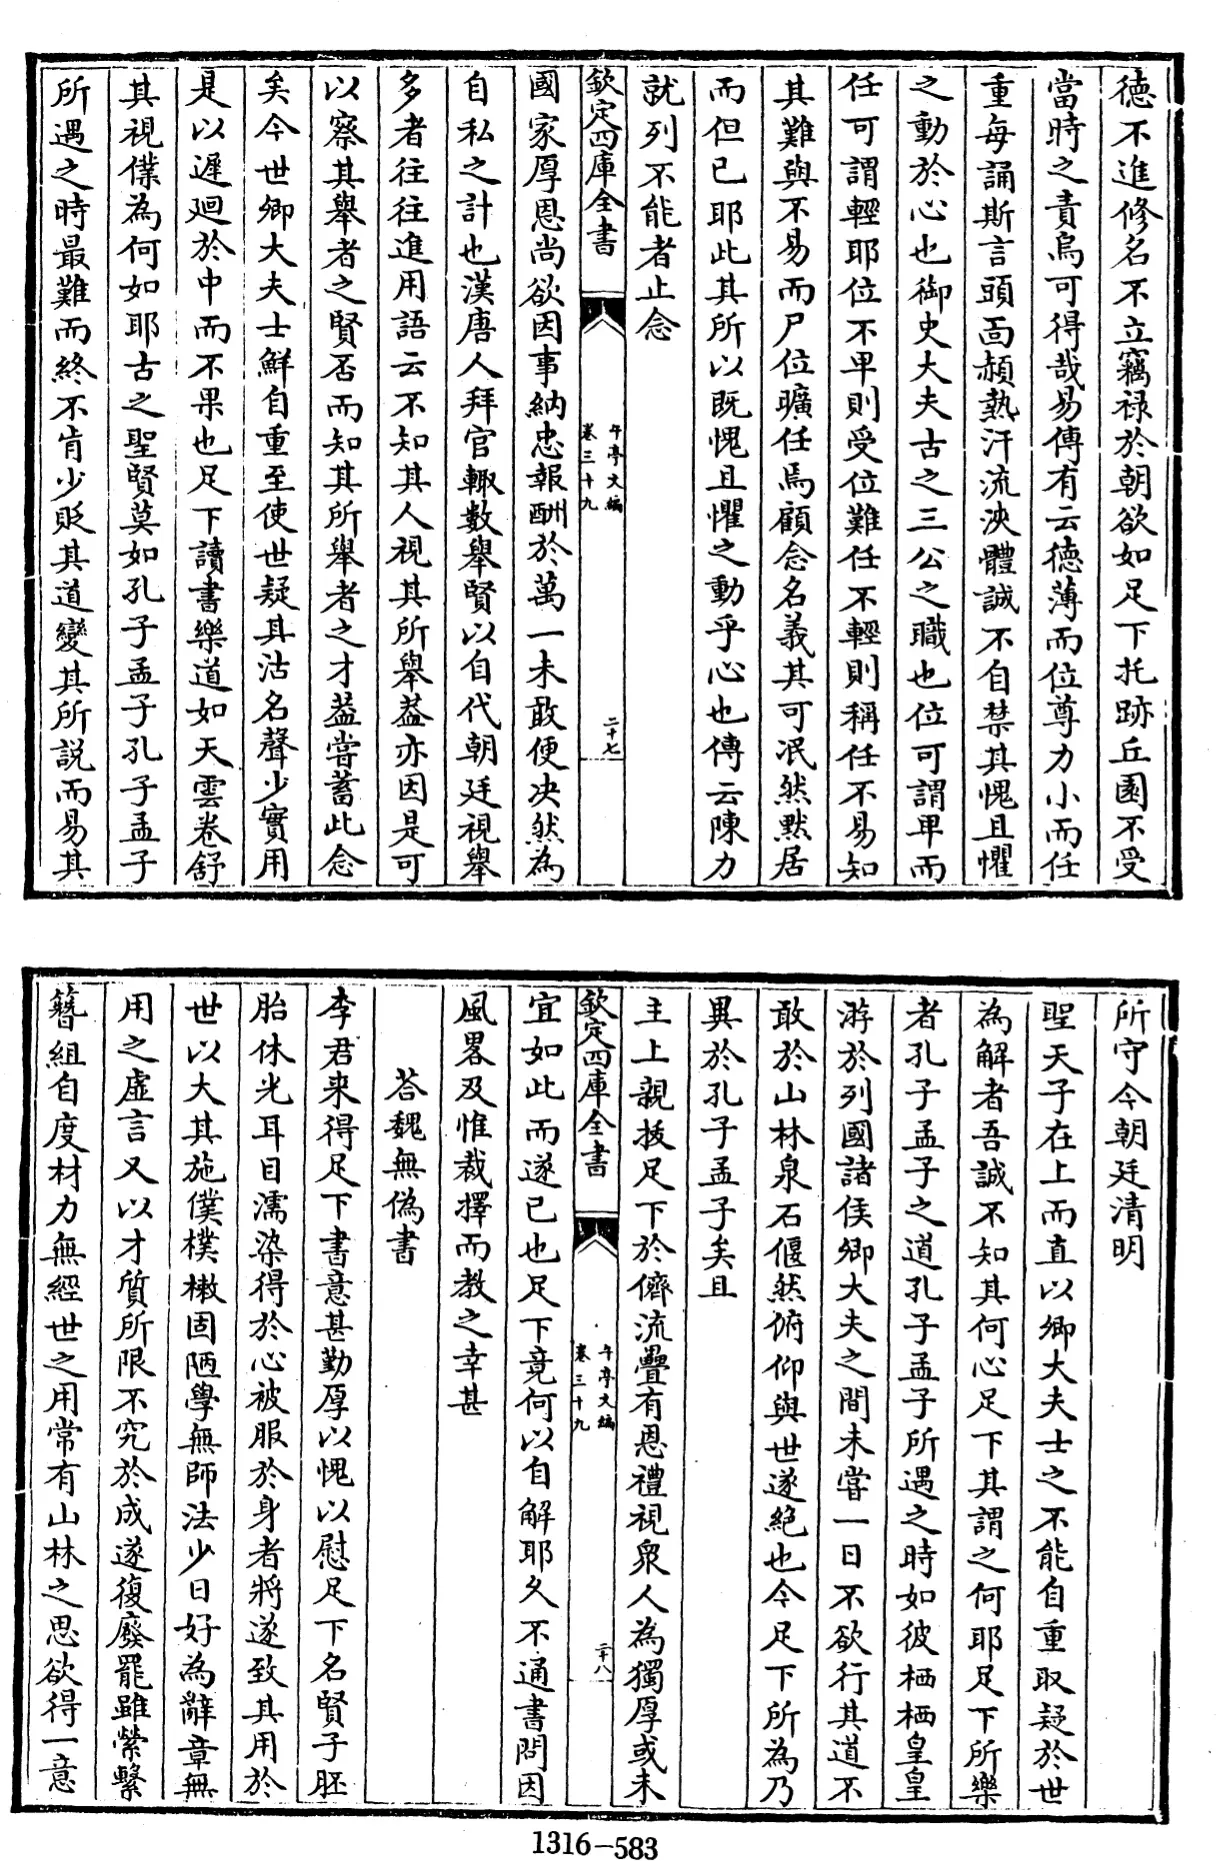 德不進修名不立竊禄於朝欲如足下托跡丘園不受
當時之責烏可得哉易傳有云德薄而位尊力小而任
重每誦斯言頭面頳熱汗流浹體誠不自禁其愧且懼
之動於心也御史大夫古之三公之職也位可謂卑而
任可謂輕耶位不卑則受位難任不輕則稱任不易知
其難與不易而尸位曠任焉顧念名義其可泯然黙居
而但已耶此其所以既愧且懼之動乎心也傳云陳力
就列不能者止念
欽定四庫全書
午亭文編
卷三十九
二十七
國家厚恩尚欲因事納忠報酬於萬一未敢便决然為
自私之計也漢唐人拜官輙數舉賢以自代朝廷視舉
多者往往進用語云不知其人視其所舉葢亦因是可
以察其舉者之賢否而知其所舉者之才葢嘗蓄此念
矣今世卿大夫士鮮自重至使世疑其沽名聲少實用
是以遲廻於中而不果也足下讀書樂道如天雲卷舒
其視僕為何如耶古之聖賢莫如孔子孟子孔子孟子
所遇之時最難而終不肯少貶其道變其所説而易其
所守今朝廷清明
聖天子在上而直以卿大夫士之不能自重取疑於世
為解者吾誠不知其何心足下其謂之何耶足下所樂
者孔子孟子之道孔子孟子所遇之時如彼栖栖皇皇
游於列國諸侯卿大夫之間未嘗一日不欲行其道不
敢於山林泉石偃然俯仰與世遂絶也今足下所為乃
異於孔子孟子矣且
主上親拔足下於儕流疊有恩禮視衆人為獨厚或未
欽定四庫全書
午亭文編
卷三十九
二十八
宜如此而遂已也足下竟何以自解耶久不通書問因
風畧及惟裁擇而教之幸甚
荅魏無偽書
李君来得足下書意甚勤厚以愧以慰足下名賢子胚
胎休光耳目濡染得於心被服於身者將遂致其用於
世以大其施僕樸樕固陋學無師法少日好為辭章無
用之虚言又以才質所限不究於成遂復廢罷雖縈繫
簪組自度材力無經世之用常有山林之思欲得一意
1316-583